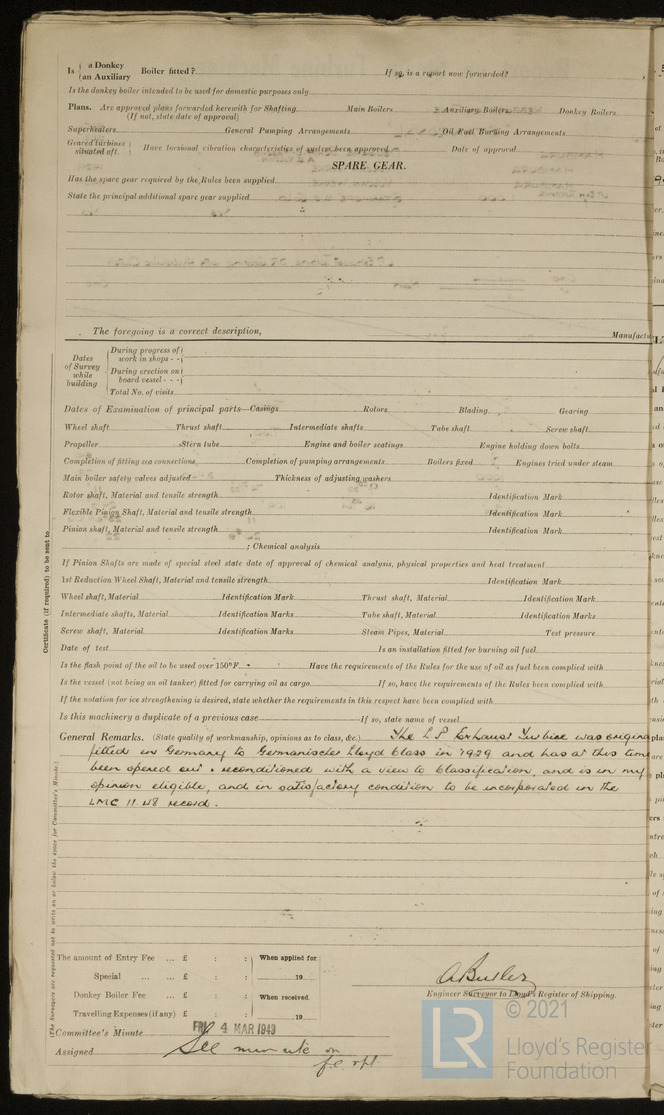 Is { a Donkey
{ an Auxiliary Boiler fitted? If so, is a report now forwarded?
Is the donkey boiler intended to be used for domestic purposes only
Plans. Are approved plans forwarded herewith for Shafting Main Boilers Auxiliary Boilers Donkey Boilers
(If not, state date of approval)
Superheaters General Pumping Arrangements Oil Fuel Burning Arrangements
Geared turbines
situated aft. } Have torsional vibration characteristics of system been approved Date of approval
SPARE GEAR.
Has the spare gear required by the Rules been supplied
State the principal additional spare gear supplied
The foregoing is a correct description, Manufactu
Dates of Survey while building
During progress of work in shops - -
During erection on board vessel - - -
Total No. of visits
Dates of Examination of principal parts—Casings Rotors Blading Gearing
Wheel shaft Thrust shaft Intermediate shafts Tube shaft Screw shaft
Propeller Stern tube Engine and boiler seatings Engine holding down bolts
Completion of fitting sea connections Completion of pumping arrangements Boilers fixed Engines tried under steam
Main boiler safety valves adjusted Thickness of adjusting washers
Rotor shaft, Material and tensile strength Identification Mark
Flexible Pinion Shaft, Material and tensile strength Identification Mark
Pinion shaft, Material and tensile strength Identification Mark
; Chemical analysis
If Pinion Shafts are made of special steel state date of approval of chemical analysis, physical properties and heat treatment
1st Reduction Wheel Shaft, Material and tensile strength Identification Mark
Wheel shaft, Material Identification Mark Thrust shaft, Material Identification Mark
Intermediate shafts, Material Identification Marks Tube shaft, Material Identification Marks
Screw shaft, Material Identification Marks Steam Pipes, Material Test pressure
Date of test Is an installation fitted for burning oil fuel
Is the flash point of the oil to be used over 150°F. Have the requirements of the Rules for the use of oil as fuel been complied with
Is the vessel (not being an oil tanker) fitted for carrying oil as cargo If so, have the requirements of the Rules been complied with
If the notation for ice strengthening is desired, state whether the requirements in this respect have been complied with
Is this machinery a duplicate of a previous case If so, state name of vessel
General Remarks. (State quality of workmanship, opinions as to class, &c.) The L.P. Exhaust Turbine was origina
fitted in Germany to Germanischer Lloyd Class in 1929 and has at this time
been opened out & reconditioned with a view to Classification, and is in my
opinion eligible, and in satisfactory condition to be incorporated in the
LMC 11.48 record.
Certificate (if required) to be sent to
(The Surveyors are requested not to write on or below the space for Committee's Minute.)
The amount of Entry Fee ... £ : : When applied for
Special ... ... £ : : 19
Donkey Boiler Fee ... £ : : When received
Travelling Expenses (if any) £ : : 19
A Butler
Engineer Surveyor to Lloyd's Register of Shipping.
Committee's Minute FRI 4 MAR 1949
Assigned See minute on
fe rpt.
© 2021
LR
Lloyd's Register
Foundation